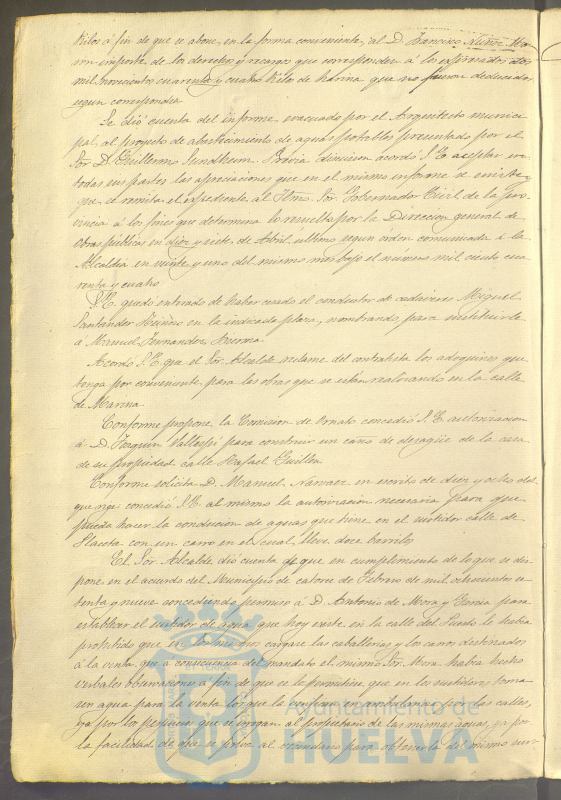 Kilos á fin de que se abone, en la forma conveniente, al D. Francisco Nuñez Ma-
rin importe de los derechos y recargos que corresponden á los expresados dos
mil novecientos cuarenta y cuatro kilos de harina que no fueron deducidos
segun correspondia
Se dió cuenta del informe evacuado por el Arquitecto munici
pal, al proyecto de abastecimiento de aguas potables presentado por el
Sor D. Guillermo Sundheim. Previa discusion acordó S. E. aceptar en
todas sus partes las apreciaciones que en el mismo informe se emiten y
que se remita el expediente al Iltmo. Sor. Gobernador Civil de la pro
vincia á los fines que determina lo resuelto por la Direccion general de
Obras públicas en diez y siete de Abril último segun orden comunicada á la
Alcaldia en veinte y uno del mismo mes bajo el numero mil ciento cua
renta y cuatro
S. E. quedó enterado de haber cesado el conductor de cadaveres Miguel
Santander en la indicada plaza, nombrando para sustituirle
á Manuel Fernandez
Acordó S. E. que el Sor. Alcalde reclame del contratista los adoquines que
tenga por conveniente para las obras que se estan realizando en la calle
de Marina
Conforme propone la Comision de Ornato concedió S. E. autorizacion
á D. Joaquin Vallespi para construir un caño de desagüe de la casa
de su propiedad calle Rafael Guillen
Conforme solicita D. Manuel Narvaez en escrito de diez y ocho del
que rige concedió S. E. al mismo la autorizacion necesaria para que
pueda hacer la conducion de aguas que tiene en el surtidor calle de
Placeta con un carro en el cual lleve doce barriles
El Sor Alcalde dió cuenta de que en cumplimiento de lo que se dis
pone en el acuerdo del Municipio de catorce de Febrero de mil ochocientos se
tenta y nueve concediendo permiso á D. Antonio de Mora y Garcia para
establecer el surtidor de agua que hoy existe en la calle del Puerto le habia
prohibido que en los mismos cargase las caballerias y los carros destinados
á la venta, que á consecuencia del mandato el mismo Sor. Mora habia hecho
verbales observaciones á fin de que se le permitiera que en los surtidores toma
sen agua para la venta los que la vendian en ambulancia por las calles,
ya por los perjuicios que se irrogan al propietario de las mismas aguas, ya por
la facilidad de que se priva al vecindario para obtenerla del mismo sur-
Ayuntamiento de
HUELVA